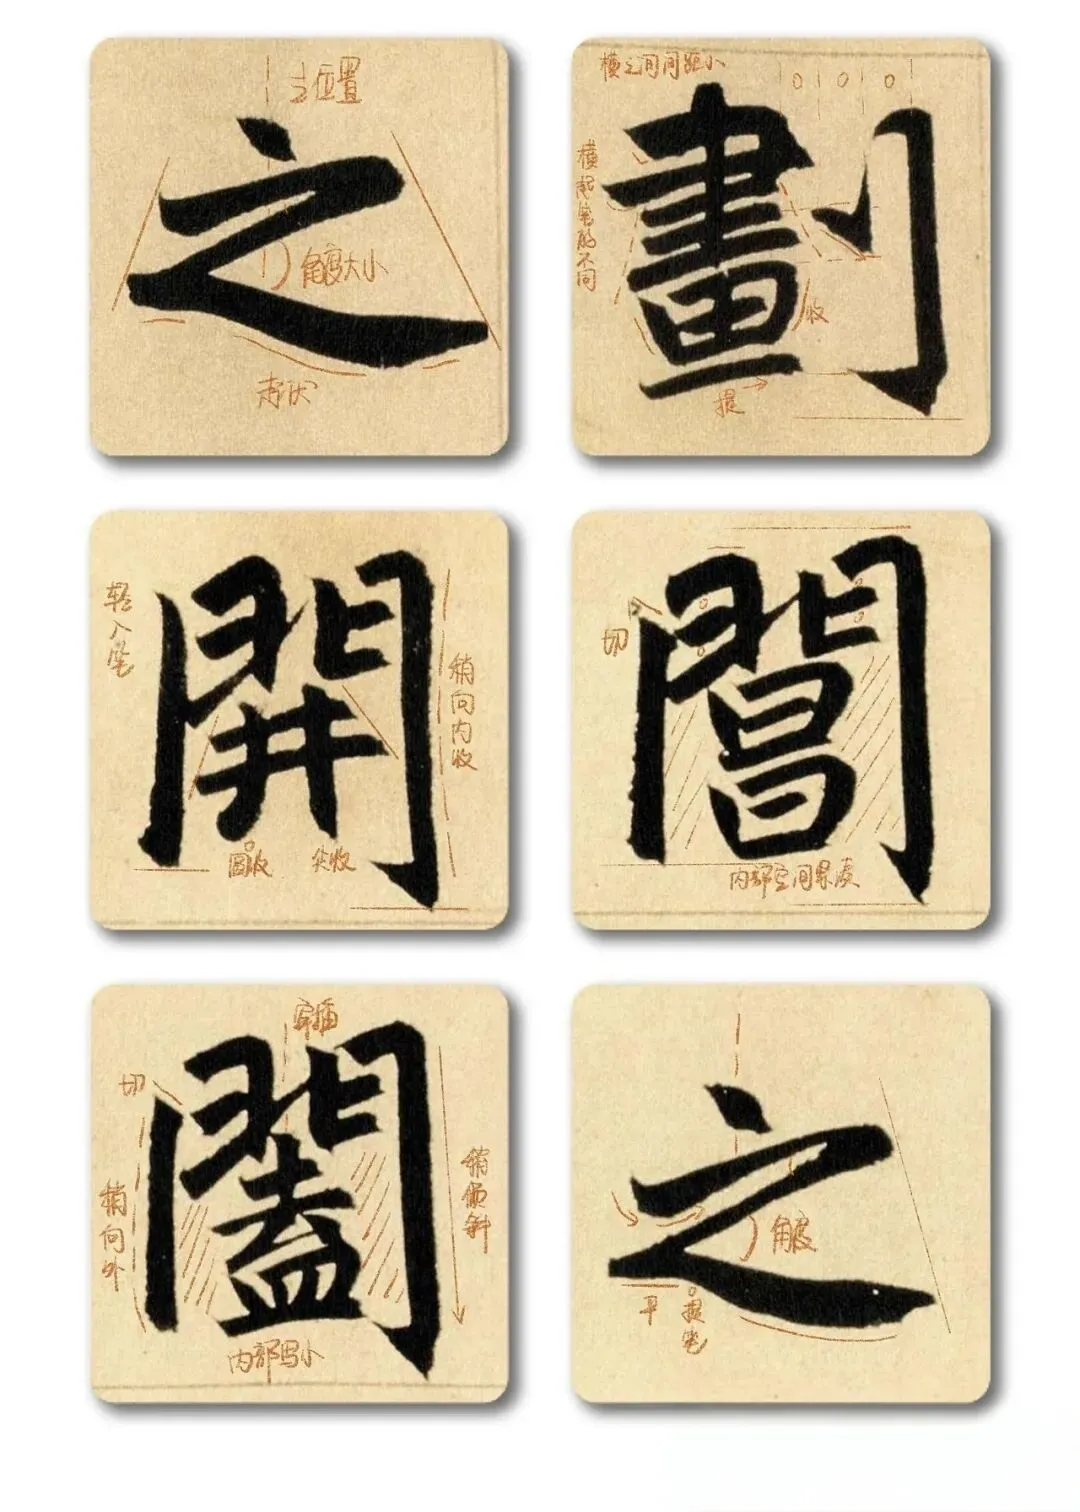 主位置
之
角度大小
起伏
横之间间距小
横起笔的不同
劃
收
提
轻入笔
開
稍向内收
圆收 尖收
切
閶
内部空间
穿插
切
闔
稍向外
稍倾斜
内部写小
之
角度
平
提笔